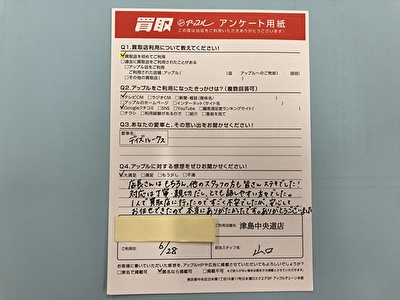 買取 アップル アンケート用紙
この度は当店をご利用いただきありがとうございます!
Q1.買取店利用について教えてください!
買取店を初めてご利用
過去に買取店をご利用されたことがある
アップル店をご利用
ご利用された店舗:アップル( )店 アップルへのご売却( )回目
その他の買取店( )
Q2.アップルをご利用になったきっかけは?(複数回答可)
テレビCM ラジオCM 新聞・雑誌(媒体名 )
アップルのホームページ インターネット(サイト名 )
Googleクチコミ SNS YouTube 顧客満足度ランキングサイト( )
チラシ ご利用経験があるので 紹介 看板を見て
Q3.あなたの愛車と、その思い出をお聞かせください!
愛車名
デイズルークス
Q4.アップルに対する感想をぜひお聞かせください!
大満足 満足 もう少し 不満
店長さんはもちろん、他のスタッフの方も皆さんステキでした!
対応は丁寧・親切だし、とても話しやすい方でした。
1人で買取店に行ったのですごく不安でしたが、安心して
お任せできたので本当にありがたかったです。ありがとうございました
ご利用店舗名: 津島中央道店
ご利用日 6/28
担当スタッフ名 山口
お客様に書いていただいた感想を、アップルHPや広告に掲載させていただいてもよろしいでしょうか?
実名で掲載可 匿名なら掲載可 掲載不可